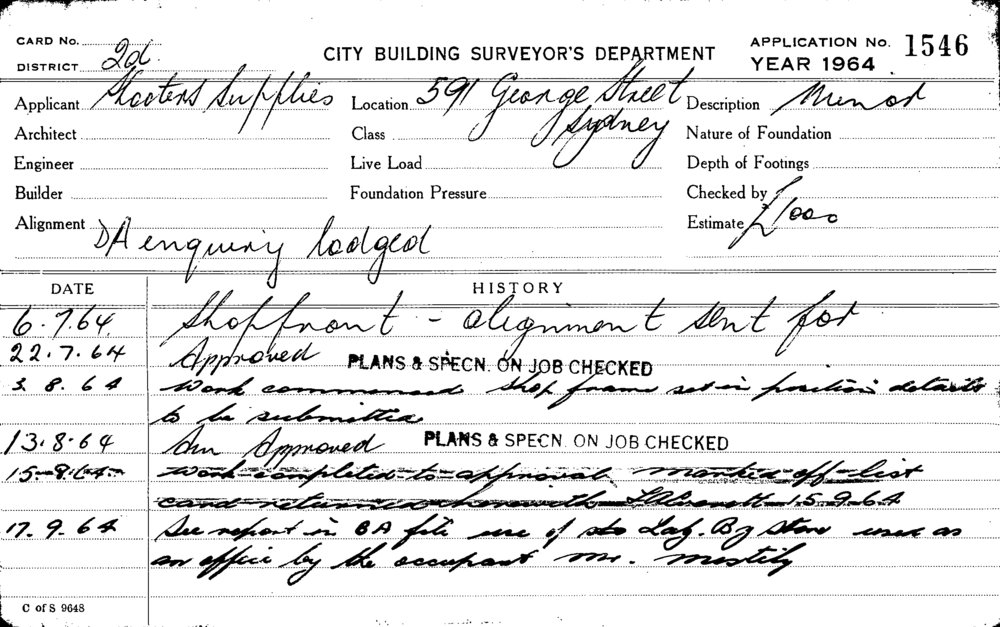 CARD No.
DISTRICT 2d.
CITY BUILDING SURVEYOR'S DEPARTMENT
APPLICATION No. 1546
YEAR 1964
Applicant Shooters Supplies
Location 591 George Street
Sydney
Description Minor
Architect
Class
Nature of Foundation
Engineer
Live Load
Depth of Footings
Builder
Foundation Pressure
Checked by
Alignment DA enquiry lodged
Estimate £1000
DATE HISTORY
6.7.64 Shopfront - alignment sent for
22.7.64 Approved PLANS & SPECN. ON JOB CHECKED
3.8.64 Work commenced shop frame set in position details
to be submitted
13.8.64 Am Approved PLANS & SPECN. ON JOB CHECKED
15-9-64- work completed to approval marked off list
card returned herewith 15.9.64
17.9.64 See report in BA file use of Store used as
an office by the occupant mr.
C of S 9648